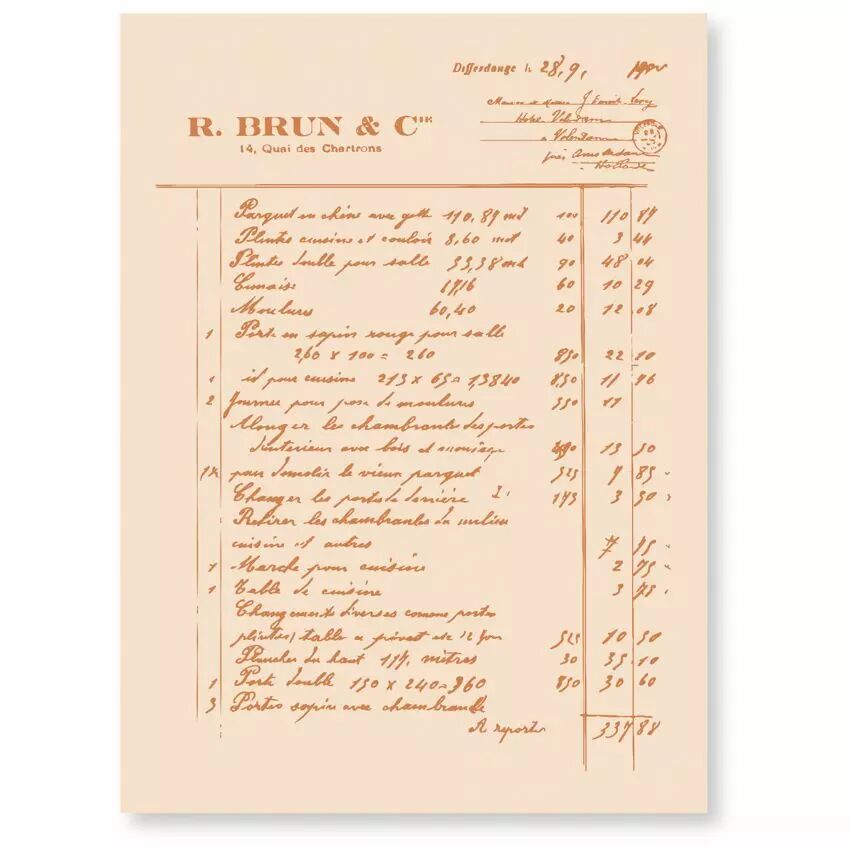 Differdange le 28, 9,
R. BRUN & Cie
14, Quai des Chartrons
Parquet en chêne avec 110,89 100 110 89
Plintes cuisine et couloir 8,60 40 3 44
Plintes double pour salle 53,38 90 48 04
Cimaise 1716 60 10 29
Moulures 60,40 20 12 08
1 Porte en sapin rouge pour salle
260 x 100 = 260 850 22 10
1 id pour cuisine 213 x 65 = 1,3840 850 11 76
2 Journée pour pose de moulures 550
Alonger les chambrantes des portes
d'interieur avec bois et 13 50
pour demolir le vieux parquet 525
Changer les portes de derrière 175 3 50
Retirer les chambrantes du milieu
cuisine et autres 7 75
1 Marche pour cuisine 2 75
1 Table de cuisine 3 75
Changements diverses comme portes
plintes table 525 10 50
Plancher du haut 117, mètres 30 35 10
1 Porte double 150 x 240 = 360 850 30 60
3 Portes sapin avec chambrante
A reporter 337 88